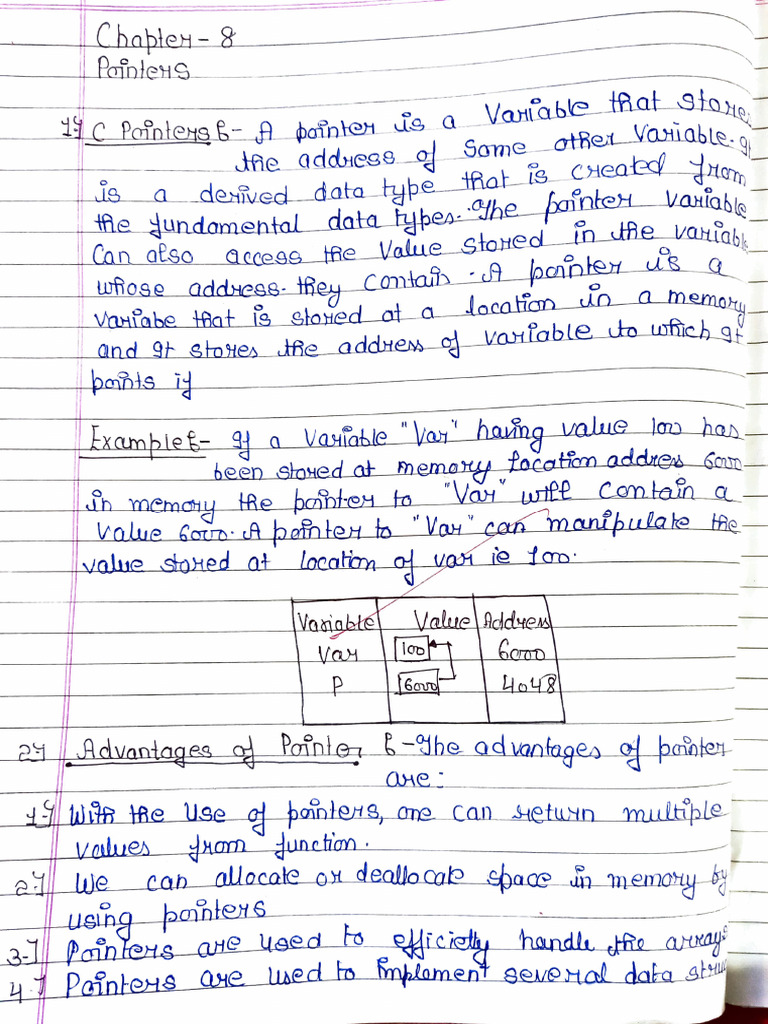 Chapter - 8
Pointers
1) C Pointers :- A pointer is a Variable that store
the address of Some other Variable. It
is a derived data type that is created from
the fundamental data types. The pointer variable
Can also access the Value stored in the variabl
whose address they Contain. A pointer is a
variabe that is stored at a location in a memory
and It stores the address of variable to which It
points
Example :- If a Variable "Var" having value 100 has
been stored at memory location address 6000
in memory the pointer to "Var" will Contain a
value 6000. A pointer to "Var" can manipulate the
value stored at location of var ie 100.
Variable Value Address
Var 100 6000
P 6000 4048
2) Advantages of Pointer :- The advantages of pointer
are:
1) With the Use of pointers, one can return multiple
values from function.
2) We can allocate or deallocate space in memory by
using pointers
3) Pointers are used to efficietly handle the arrays
4) Pointers are used to implement several data struc